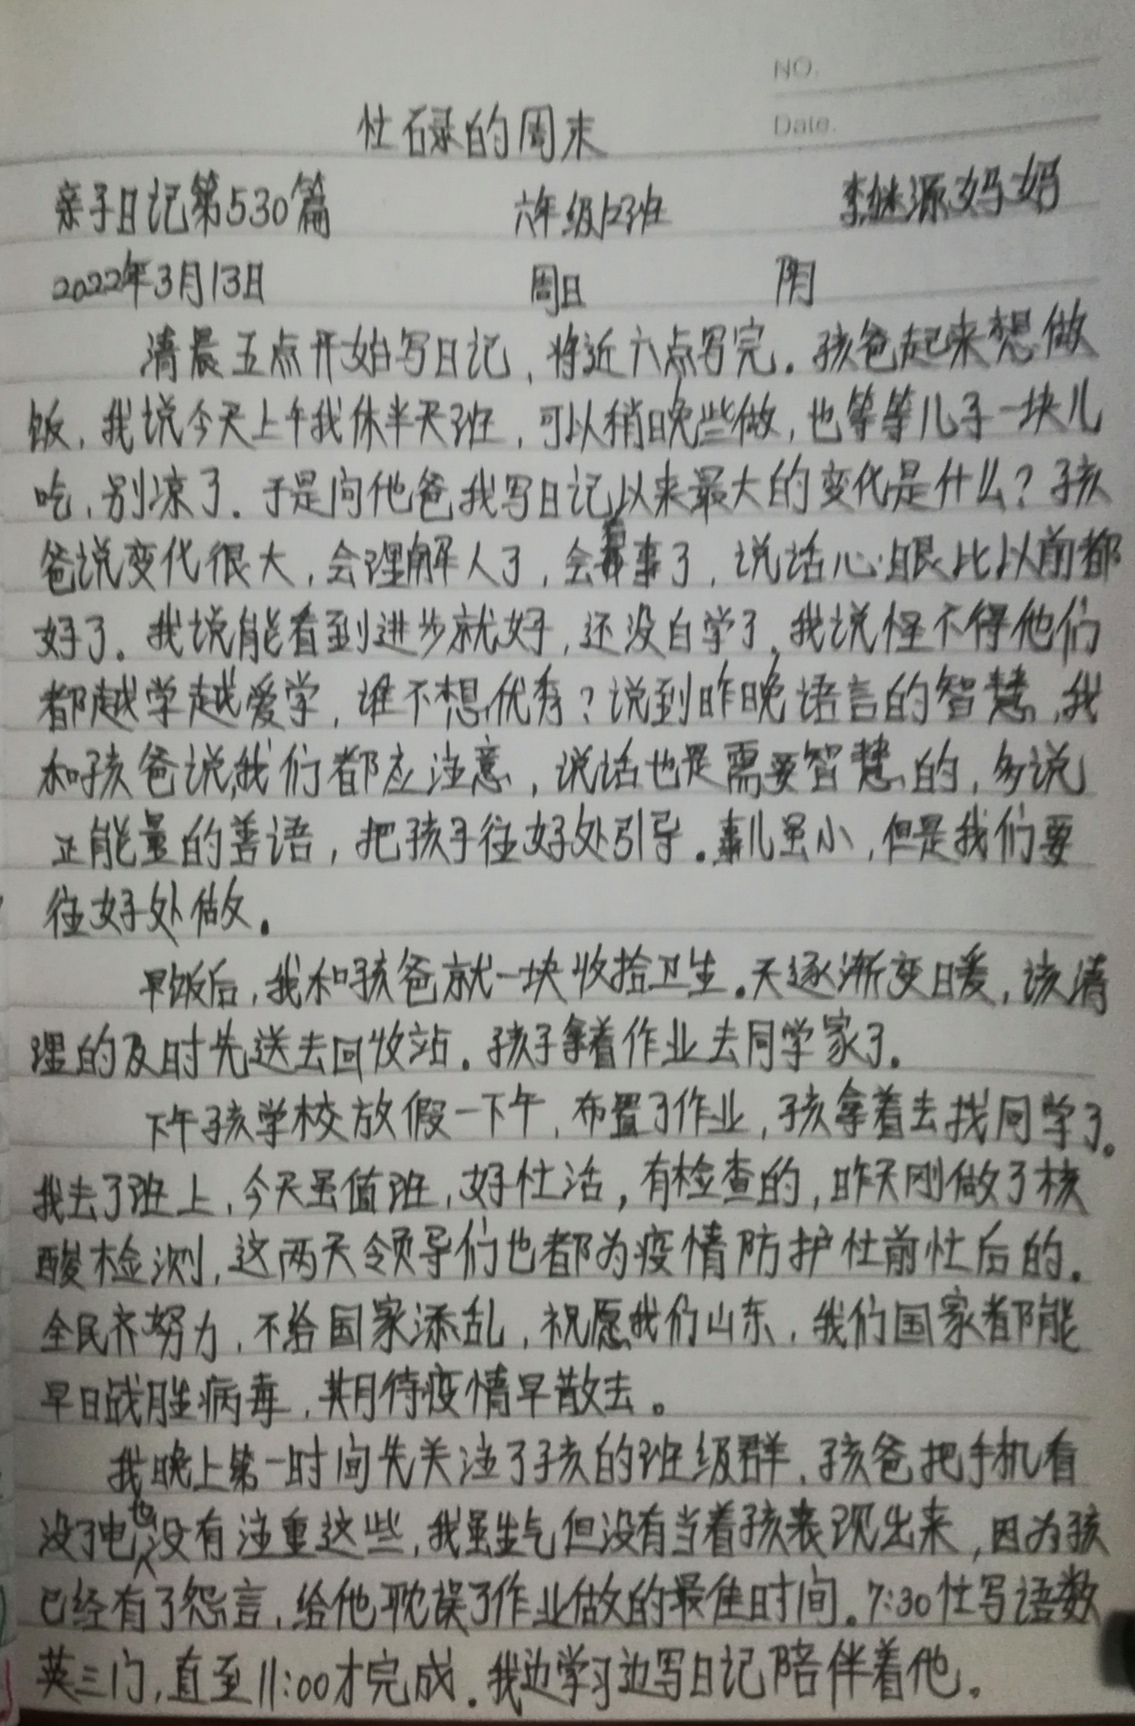 NO.
Date.
忙碌的周末
亲子日记第530篇 六年级12班 李继源妈妈
2022年3月13日 周日 阴
清晨五点开始写日记，将近六点写完。孩爸起来想做
饭，我说今天上午我休半天班，可以稍晚些做，也等等儿子一块儿
吃，别凉了。于是问他爸我写日记以来最大的变化是什么？孩
爸说变化很大，会理解人了，会看事了，说话心眼比以前都
好了。我说能看到进步就好，还没白学了，我说怪不得他们
都越学越爱学，谁不想优秀？说到昨晚语言的智慧，我
和孩爸说，我们都应注意，说话也是需要智慧的，多说
正能量的善语，把孩子往好处引导。事儿虽小，但是我们要
往好处做。
早饭后，我和孩爸就一块收拾卫生。天逐渐变暖，该清
理的及时先送去回收站。孩子拿着作业去同学家了。
下午孩学校放假一下午，布置了作业，孩拿着去找同学了。
我去了班上，今天虽值班，好忙活，有检查的，昨天刚做了核
酸检测，这两天领导们也都为疫情防护忙前忙后的。
全民齐努力，不给国家添乱，祝愿我们山东，我们国家都能
早日战胜病毒，期待疫情早散去。
我晚上第一时间先关注了孩的班级群，孩爸把手机看
没了电也没有注重这些，我虽生气但没有当着孩表现出来，因为孩
已经有了怨言，给他耽误了作业做的最佳时间。7:30忙写语数
英三门，直至11:00才完成。我边学习边写日记陪伴着他。